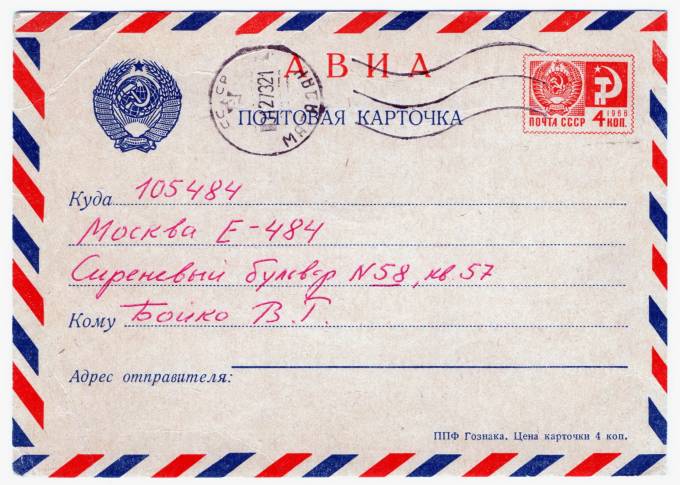 АВИА
ПОЧТОВАЯ КАРТОЧКА
СССР
1966
ПОЧТА СССР 4 КОП.
Куда 105484
Москва Е-484
Сиреневый бульвар N58, кв. 57
Кому Бойко В.Г.
Адрес отправителя:
ППФ Гознака. Цена карточки 4 коп.